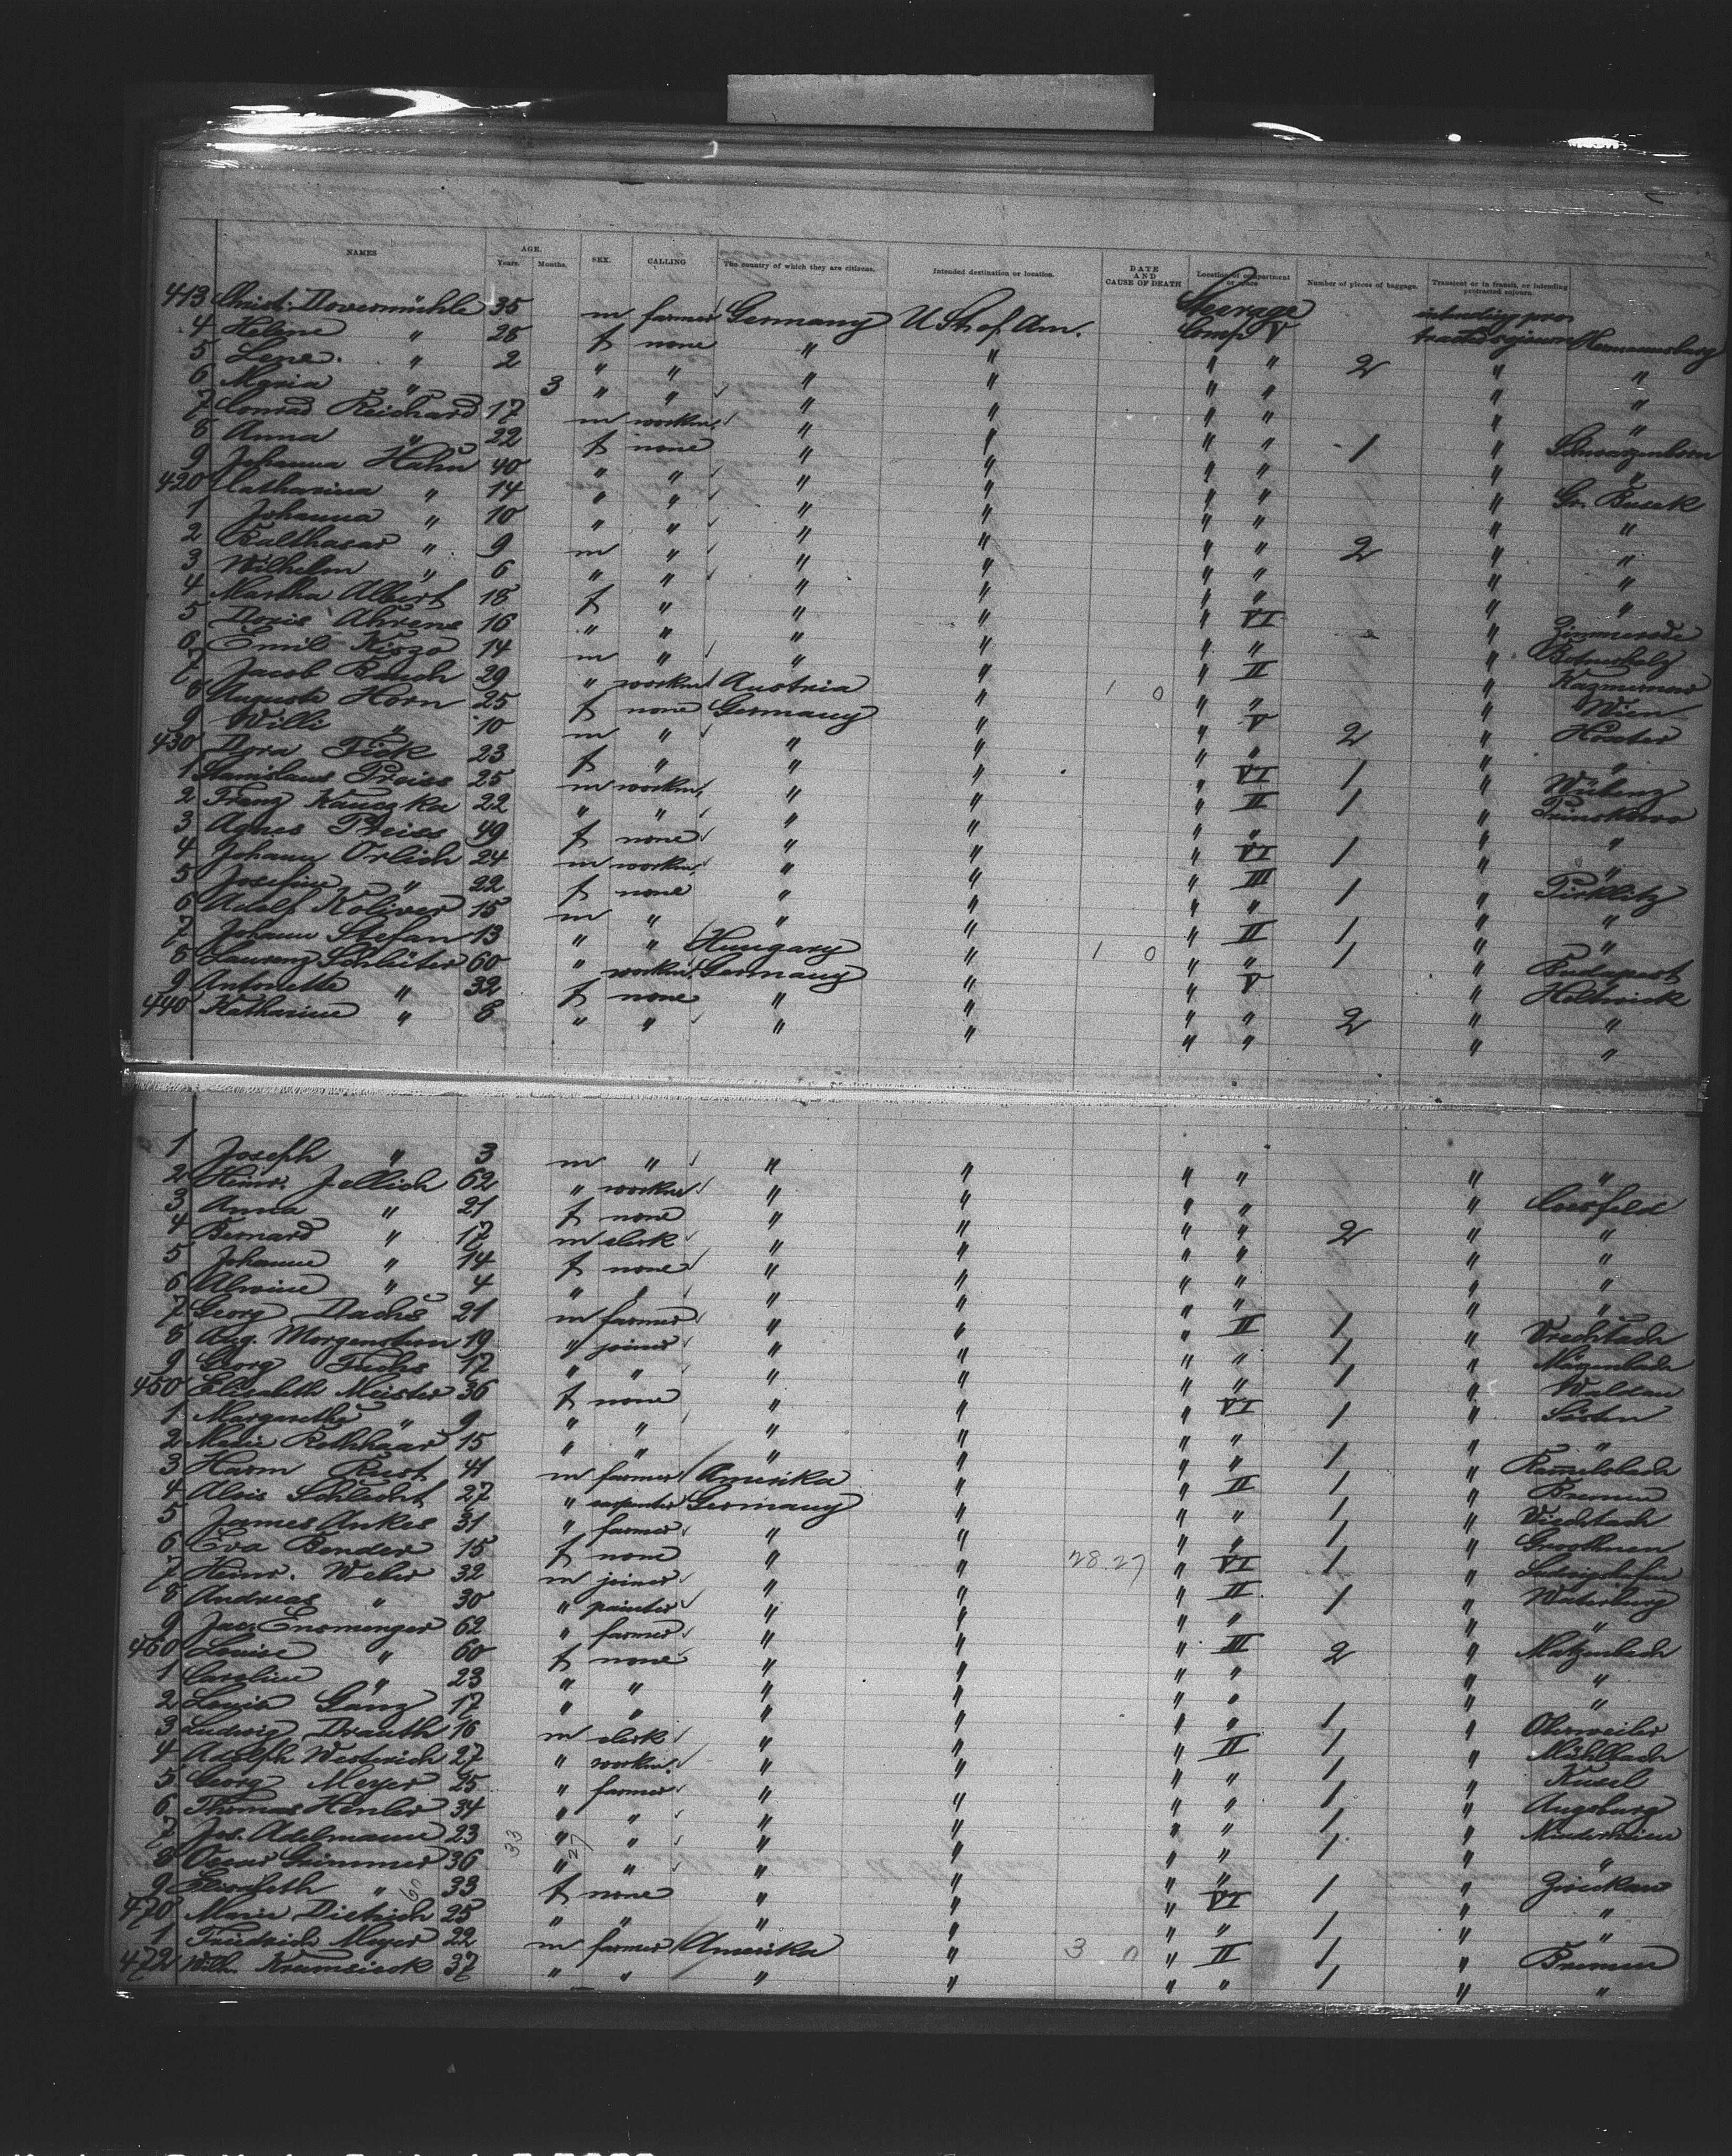 NAMES AGE. Years. Months. SEX. CALLING The country of which they are citizens. Intended destination or location. DATE AND CAUSE OF DEATH Location of compartment or space Number of pieces of baggage. Transient or in transit, or intending protracted sojourn.
413 Christ. Dovermühle 35 m farmer Germany U St of Am. Steerage Comp V intending protracted sojourn Hermannsburg
4 Helene " 25 f none " " " " 2 " "
5 Lene " 2 " " " " " " " "
6 Maria " 3 " " " " " " " "
7 Conrad Reichard 17 m workm. " " " " 1 " Schwarzenborn
8 Anna " 22 f none " " " " " "
9 Johanna Hahn 40 " " " " " " " Gr. Buseck
420 Katharina " 14 " " " " " " " "
1 Johanna " 10 " " " " " " 2 " "
2 Balthasar " 9 m " " " " " " "
3 Wilhelm " 6 " " " " " " " "
4 Martha Albert 18 f " " " " VI " Zimmersode
5 Doris Ahrens 16 " " " " " " "
6 Emil 14 m " " " " II "
7 Jacob Bauch 29 " workm. Austria " 1 0 " " " Wien
8 Auguste Horn 25 f none Germany " " V 2 "
9 Willi " 10 m " " " " " " "
430 Dora Fick 23 f " " " " VI 1 "
1 Stanislaus Preiss 25 m workm. " " " II 1 "
2 Franz Kauczka 22 " " " " " " " "
3 Agnes Preiss 49 f none " " " VI 1 " "
4 Johann Orlich 24 m workm. " " " III 1 " Pirklitz
5 Josefine " 22 f none " " " " " "
6 Adolf Koliver 15 m " " " " II 1 " "
7 Johann Stefan 13 " " Hungary " 1 0 " " 1 " Budapest
8 Laurenz Schlüter 60 " workm. Germany " " V " Holtwick
9 Antonette " 32 f none " " " " 2 " "
440 Katharine " 8 " " " " " " " "
1 Joseph " 3 m " " " " " " "
2 Heinr. Jellich 62 " workm. " " " " " Coesfeld
3 Anna " 21 f none " " " " 2 " "
4 Bernard " 17 m clerk " " " " " "
5 Johanne " 14 f none " " " " " "
6 Alwine " 4 " " " " " " " "
7 Georg Dachs 21 m farmer " " " II 1 " Viechtach
8 Aug. Morgenstern 19 " joiner " " " " 1 " Mazenbach
9 Georg Fuchs 17 " " " " " " 1 " Waldau
450 Elisabeth Meister 36 f none " " " VI 1 "
1 Margarethe " 9 " " " " " " " "
2 Marie Rothhaar 15 " " " " " " 1 " Ramelsbach
3 Harm Rust 41 m farmer Amerika " " II 1 " Bremen
4 Alois Schlecht 27 " carpenter Germany " " " 1 " Viechtach
5 James Ankes 31 " farmer " " " " 1 "
6 Eva Bender 15 f none " " 28.27 " VI 1 " Ludwigshafen
7 Heinr. Weber 32 m joiner " " " II 1 "
8 Andreas " 30 " painter " " " " " "
9 Jac. Ensmenger 62 " farmer " " " III 2 " Matzenbach
460 Louise " 60 f none " " " " " "
1 Caroline " 23 " " " " " " " "
2 Louis Ganz 17 " " " " " " 1 " Oberweiler
3 Ludwig Drauth 16 m clerk " " " II 1 " Mühlbach
4 Adolph Westerich 27 " workm. " " " " 1 " Kusel
5 Georg Meyer 25 " farmer " " " " 1 " Augsburg
6 Thomas Henler 34 " " " " " " 1 "
7 Jos. Adelmann 23 33 " 27 " " " " " 1 " "
8 Oscar Grimmer 36 " " " " " " 1 " Zwickau
9 Elisabeth " 60 33 f none " " " VI " "
470 Marie Dietrich 25 " " " " " " 1 " "
1 Friedrich Meyer 22 m farmer Amerika " 3 0 " II 1 " Bremen
472 Wilh. Krumsieck 37 " " " " " " 1 " "